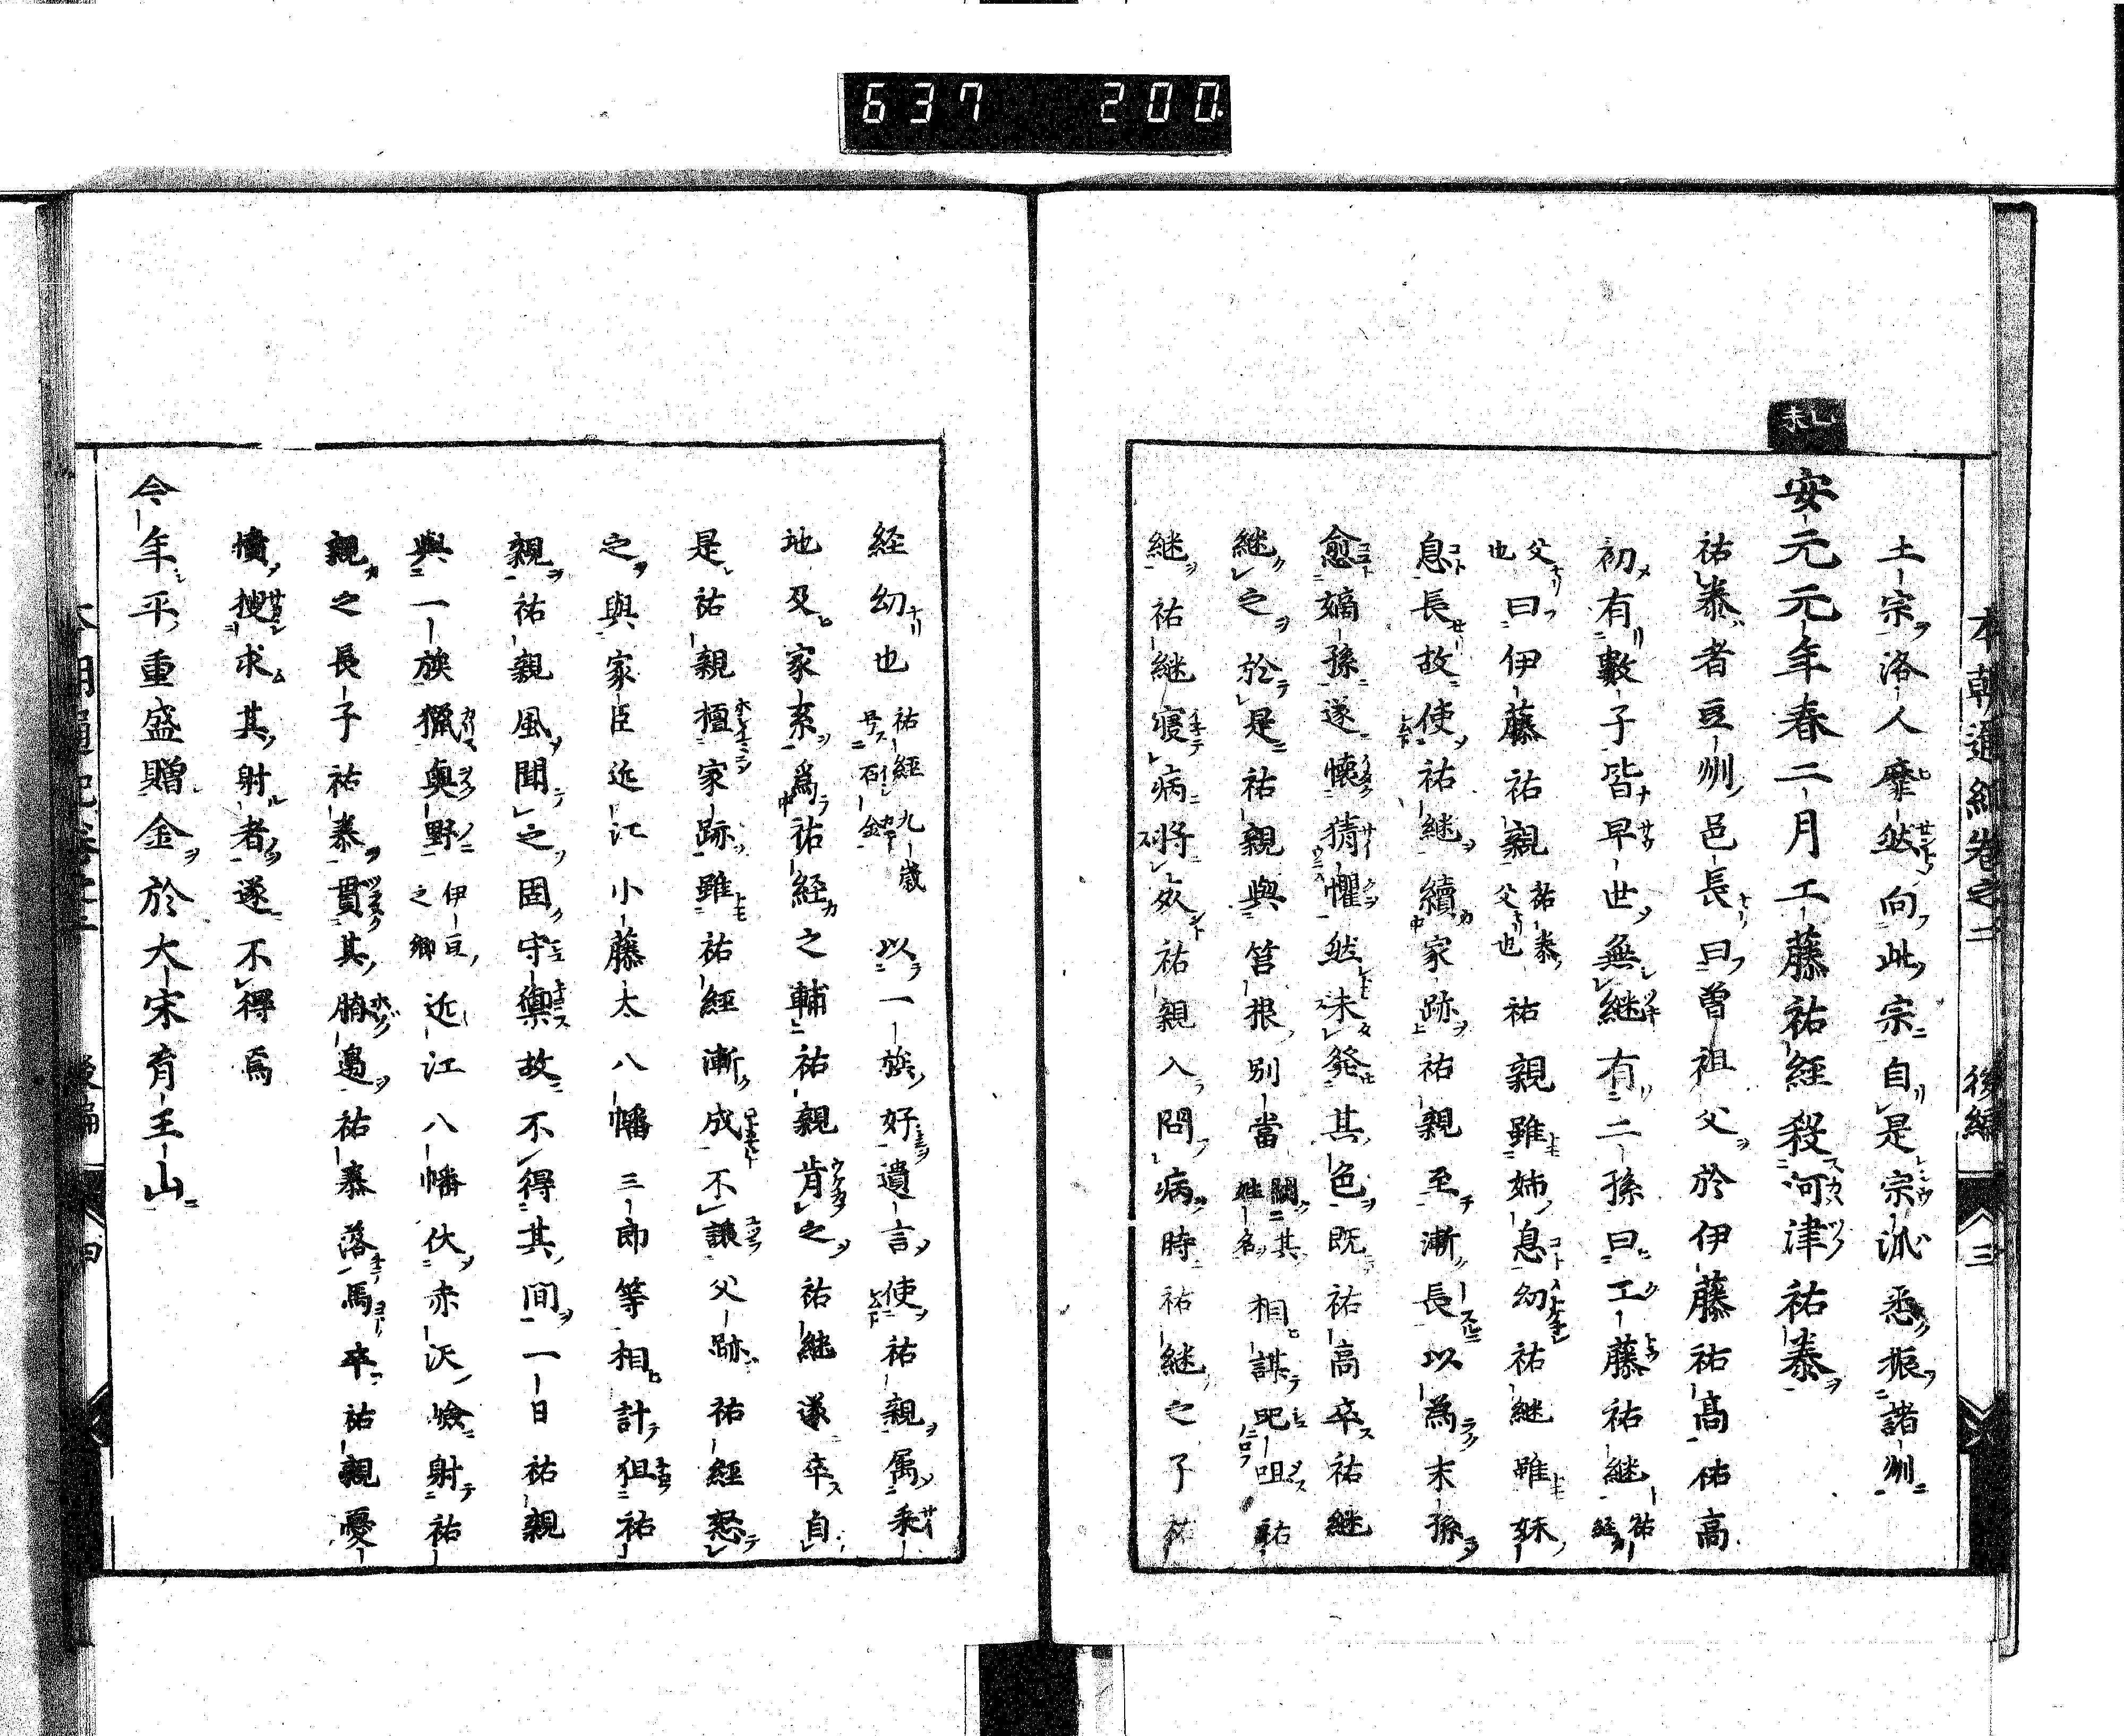 637 200.
本朝通紀卷之二 後編 三
土宗洛人靡然向此宗自是宗派悉振諸州
乙未
安元元年春二月工藤祐経殺河津祐泰
祐泰者豆州邑長曰曽祖父於伊藤祐高祐高
初有數子皆早世無継有二孫曰工藤祐継祐経
父也曰伊藤祐親祐泰父也祐親雖姉息幼祐継雖妹
息長故使祐継續家跡祐親至漸長以為末孫
愈嫡孫遂懐猜懼然未發其色既祐高卒祐継
継之於是祐親與筥根別當闕其姓名相謀呪咀祐
継祐継寝病将歿祐親入問病時祐継之子祐
経幼也祐経九歳号石金以一族好遺言使祐親属釆
地及家系為祐経之輔祐親肯之祐継遂卒自
是祐親擅家跡雖祐経漸成不譲父跡祐経怒
之與家臣近江小藤太八幡三郎等相計狙祐
親祐親風聞之固守禦故不得其間一日祐親
與一族獵奥野伊豆之郷近江八幡伏赤沢嶮射祐
親之長子祐泰貫其腑邉祐泰落馬卒祐親憂
憤搜求其射者遂不得焉
今年平重盛贈金於大宋育王山